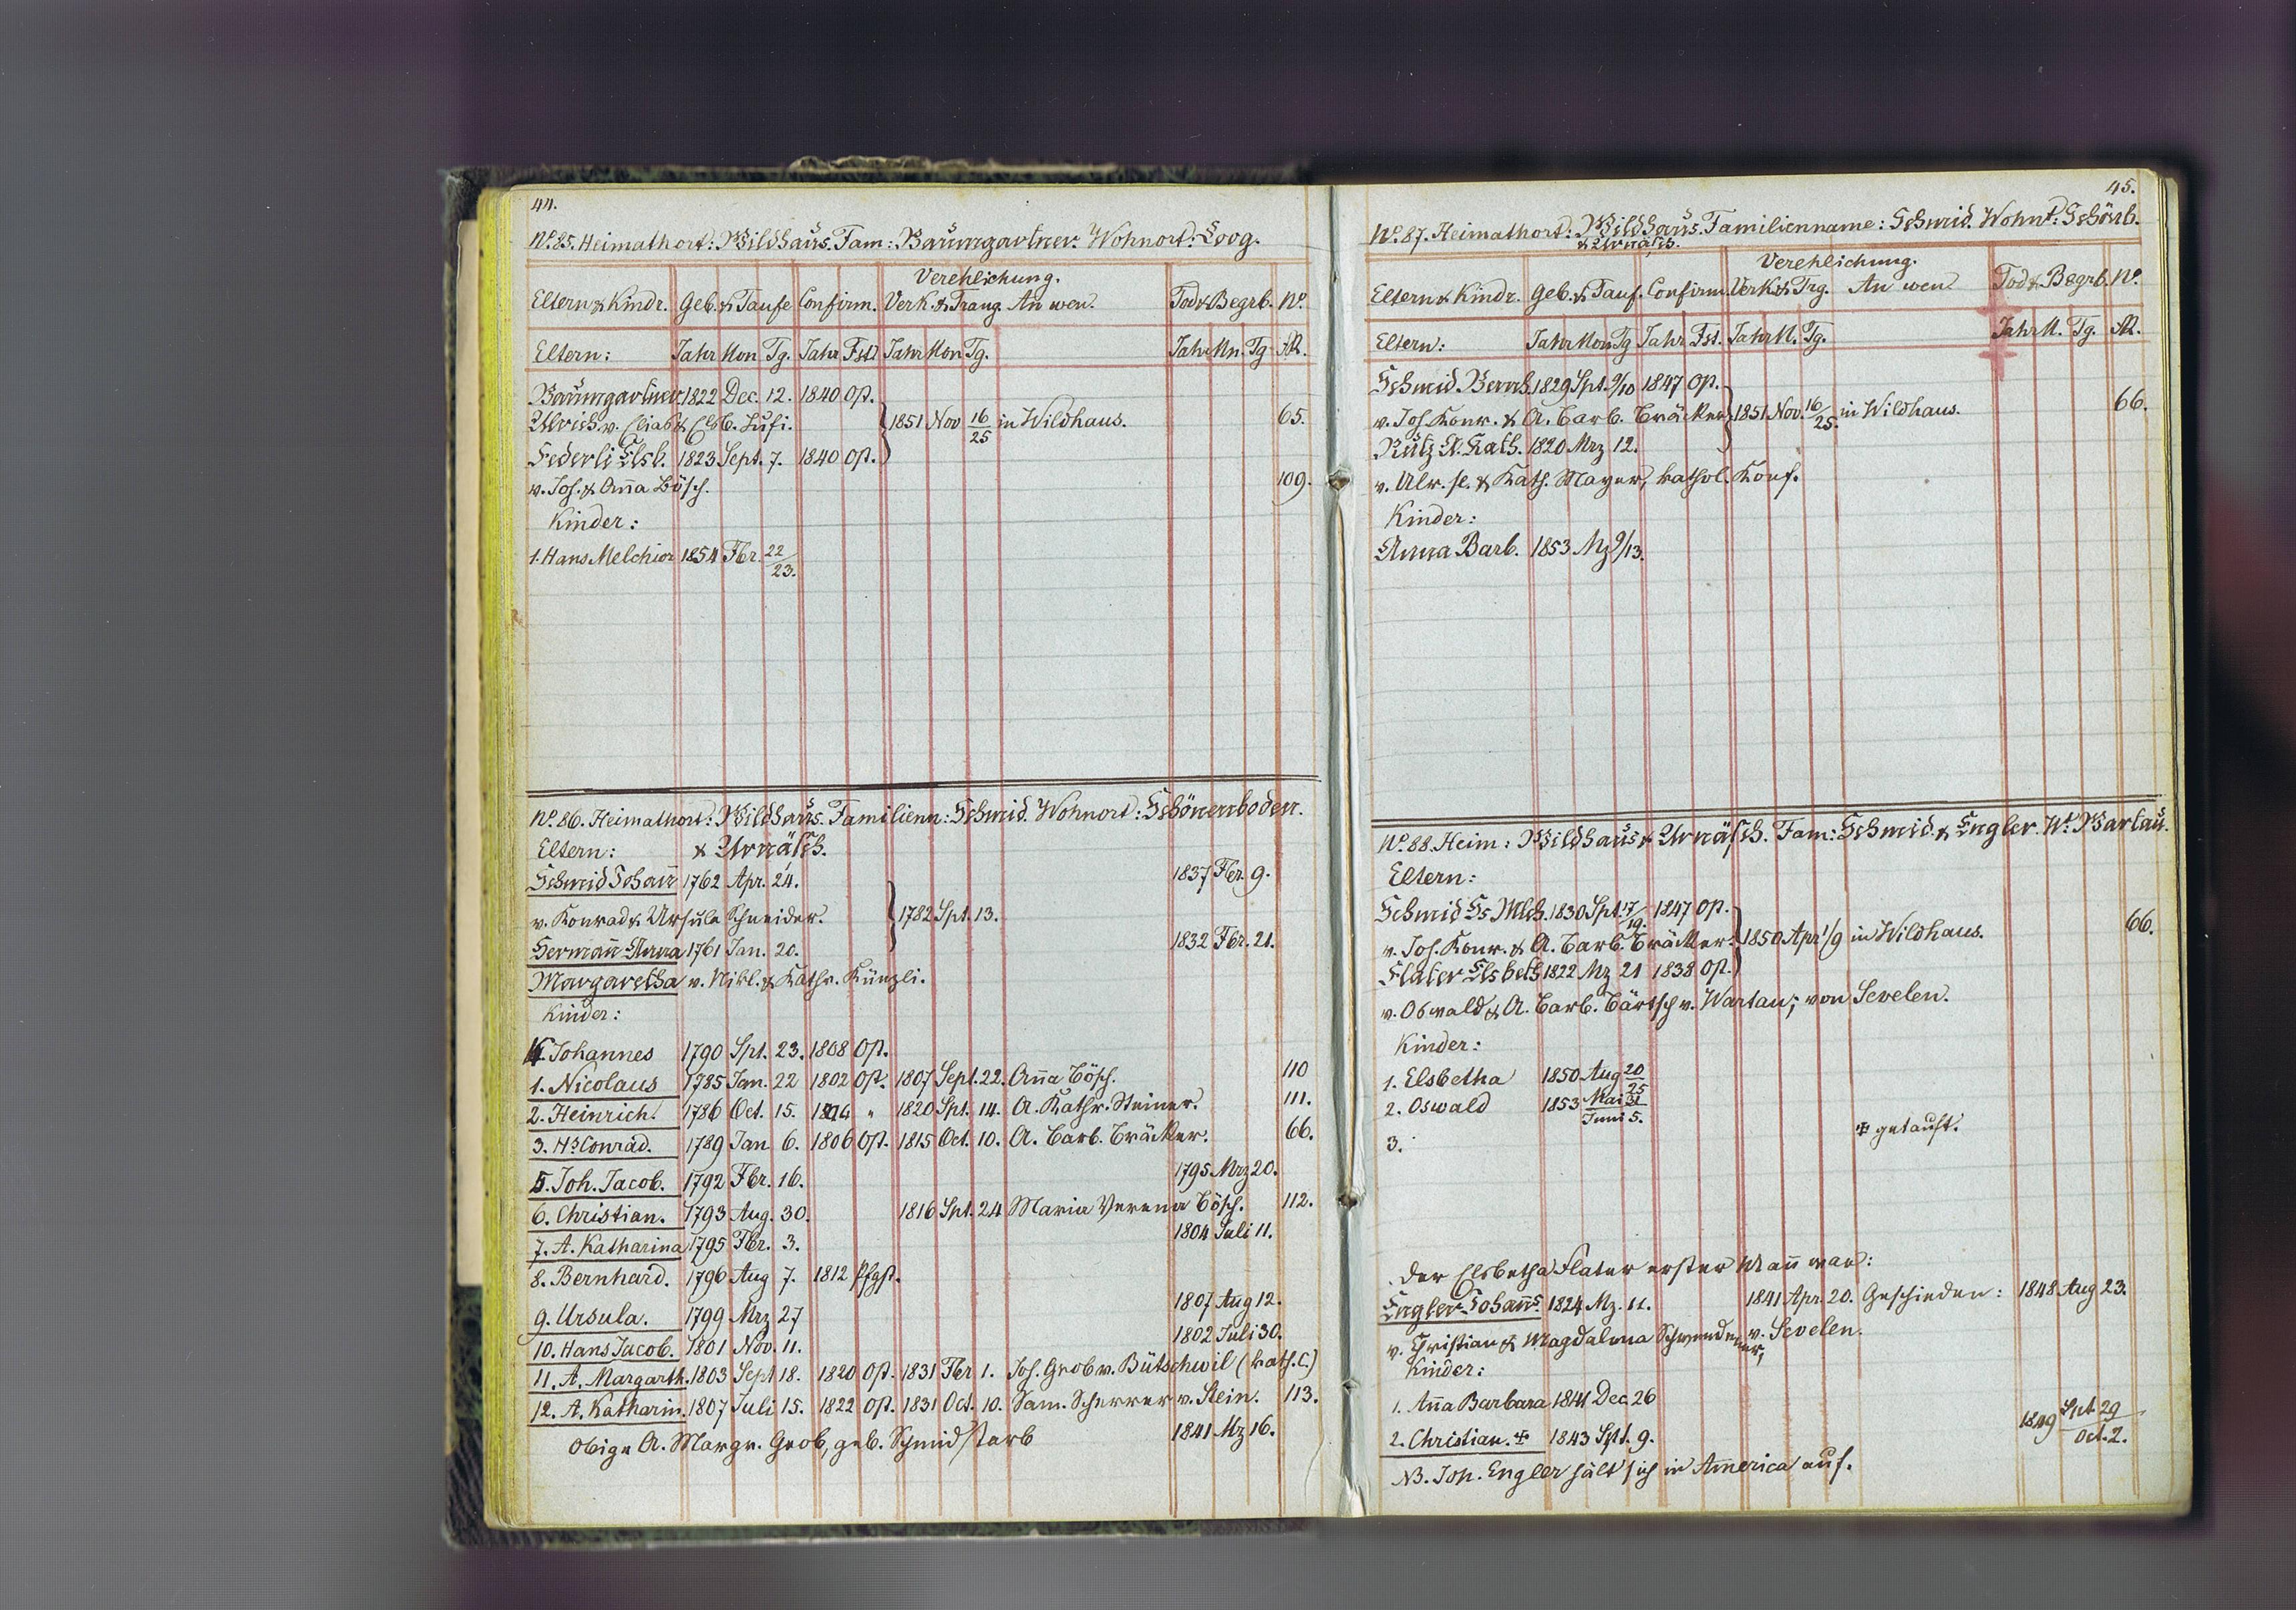 44.
No. 85. Heimathort: Wildhaus. Fam: Baumgartner. Wohnort: Loog.
Verehlichung.
Eltern & Kindr. Geb. & Taufe Confirm. Verk. & Traug. An wen. Tod & Begrb. No.
Eltern: Jahr Mon Tg. Jahr Fst Jahr Mon Tg. Jahr Mn. Tg
Baumgartner 1822 Dec. 12. 1840 Ost.
Ulrich v. Eliab & Elsb. 1851 Nov 16/25 in Wildhaus. 65.
Federli Elsb. 1823 Sept. 7. 1840 Ost.
v. Joh. & Anna Bösch. 109.
Kinder:
1. Hans Melchior 1854 Fbr. 22/23.
No. 86. Heimathort: Wildhaus. Familienn: Schmid. Wohnort: Schönenboden.
Eltern: & Urnäsch.
Schmid Johann 1762 Apr. 24. 1837 Fbr. 9.
v. Konrad & Ursula Schneider. 1782 Spt. 13.
Hermann Anna 1761 Jan. 20. 1832 Fbr. 21.
Margaretha v. Nikl. & Kathr. Künzli.
Kinder:
4. Johannes 1790 Spt. 23. 1808 Ost.
1. Nicolaus 1785 Jan. 22 1802 Ost. 1807 Sept. 22. Anna Bösch. 110
2. Heinrich. 1786 Oct. 15. 1804 " 1820 Spt. 14. A. Kathr. Steiner. 111.
3. Hs Conrad. 1789 Jan 6. 1806 Ost. 1815 Oct. 10. A. Barb. Bräcker. 66.
5. Joh. Jacob. 1792 Fbr. 16. 1795 Mrz 20.
6. Christian. 1793 Aug. 30. 1816 Spt. 24 Maria Verena Bösch. 112.
7. A. Katharina 1795 Fbr. 3. 1804 Juli 11.
8. Bernhard. 1796 Aug 7. 1812 Pfgst.
9. Ursula. 1799 Mrz 27 1807 Aug 12.
10. Hans Jacob. 1801 Nov. 11. 1802 Juli 30.
11. A. Margarth. 1803 Sept 18. 1820 Ost. 1831 Fbr 1. Joh. Grob v. Bütschwil (kath. C.)
12. A. Katharin. 1807 Juli 15. 1822 Ost. 1831 Oct. 10. Sam. Scherrer v. Stein. 113.
Obige A. Margr. Grob, geb. Schmid starb 1841 Mz 16.
45.
No. 87. Heimathort: Wildhaus. Familienname: Schmid. Wohnt: Schönb.
& Urnäsch.
Verehlichung.
Eltern & Kindr. Geb. & Tauf. Confirm. Verk & Trg. An wen Tod & Begrb. No.
Eltern: Jahr Mon Tg Jahr Fst. Jahr M. Tg. Jahr M. Tg.
Schmid Bernh. 1829 Spt. 9/10 1847 Ost.
v. Joh. Konr. & A. Barb. Bräcker 1851 Nov. 16/25. in Wildhaus. 66.
Rütz A. Kath. 1820 Mrz 12.
v. Ulr. sl. & Kath. Mayer, kathol. Konf.
Kinder:
Anna Barb. 1853 Mz 9/13.
No. 88. Heim: Wildhaus & Urnäsch. Fam: Schmid & Engler. Wt: Wartau.
Eltern:
Schmid Hs Mlch. 1830 Spt. 17/19. 1847 Ost.
v. Joh. Konr. & A. Barb. Bräcker. 1850 Apr 1/9 in Wildhaus. 66.
Flater Elsbeth 1822 Mz 21 1838 Ost.
v. Oswald & A. Barb. Bärtsch v. Wartau; von Sevelen.
Kinder:
1. Elsbetha 1850 Aug 20/25
2. Oswald 1853 Mai 31/Juni 5.
3. getauft.
Der Elsbetha Flater erster Mann war:
Engler Johanns 1824 Mz. 11. 1841 Apr. 20. Geschieden: 1848 Aug 23.
v. Christian & Magdalena Schwendener, v. Sevelen.
Kinder:
1. Anna Barbara 1841 Dec. 26
2. Christian. 1843 Spt. 9. 1849 Spt. 29/Oct. 2.
NB. Joh. Engler hält sich in America auf.